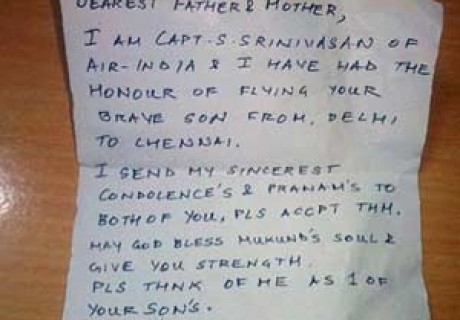 DEAREST FATHER & MOTHER,
I AM CAPT. S. SRINIVASAN OF
AIR-INDIA & I HAVE HAD THE
HONOUR OF FLYING YOUR
BRAVE SON FROM, DELHI
TO CHENNAI.
I SEND MY SINCEREST
CONDOLENCE'S & PRANAM'S TO
BOTH OF YOU, PLS ACCPT THM.
MAY GOD BLESS MUKUND'S SOUL &
GIVE YOU STRENGTH.
PLS THNK OF ME AS 1 OF
YOUR SON'S.